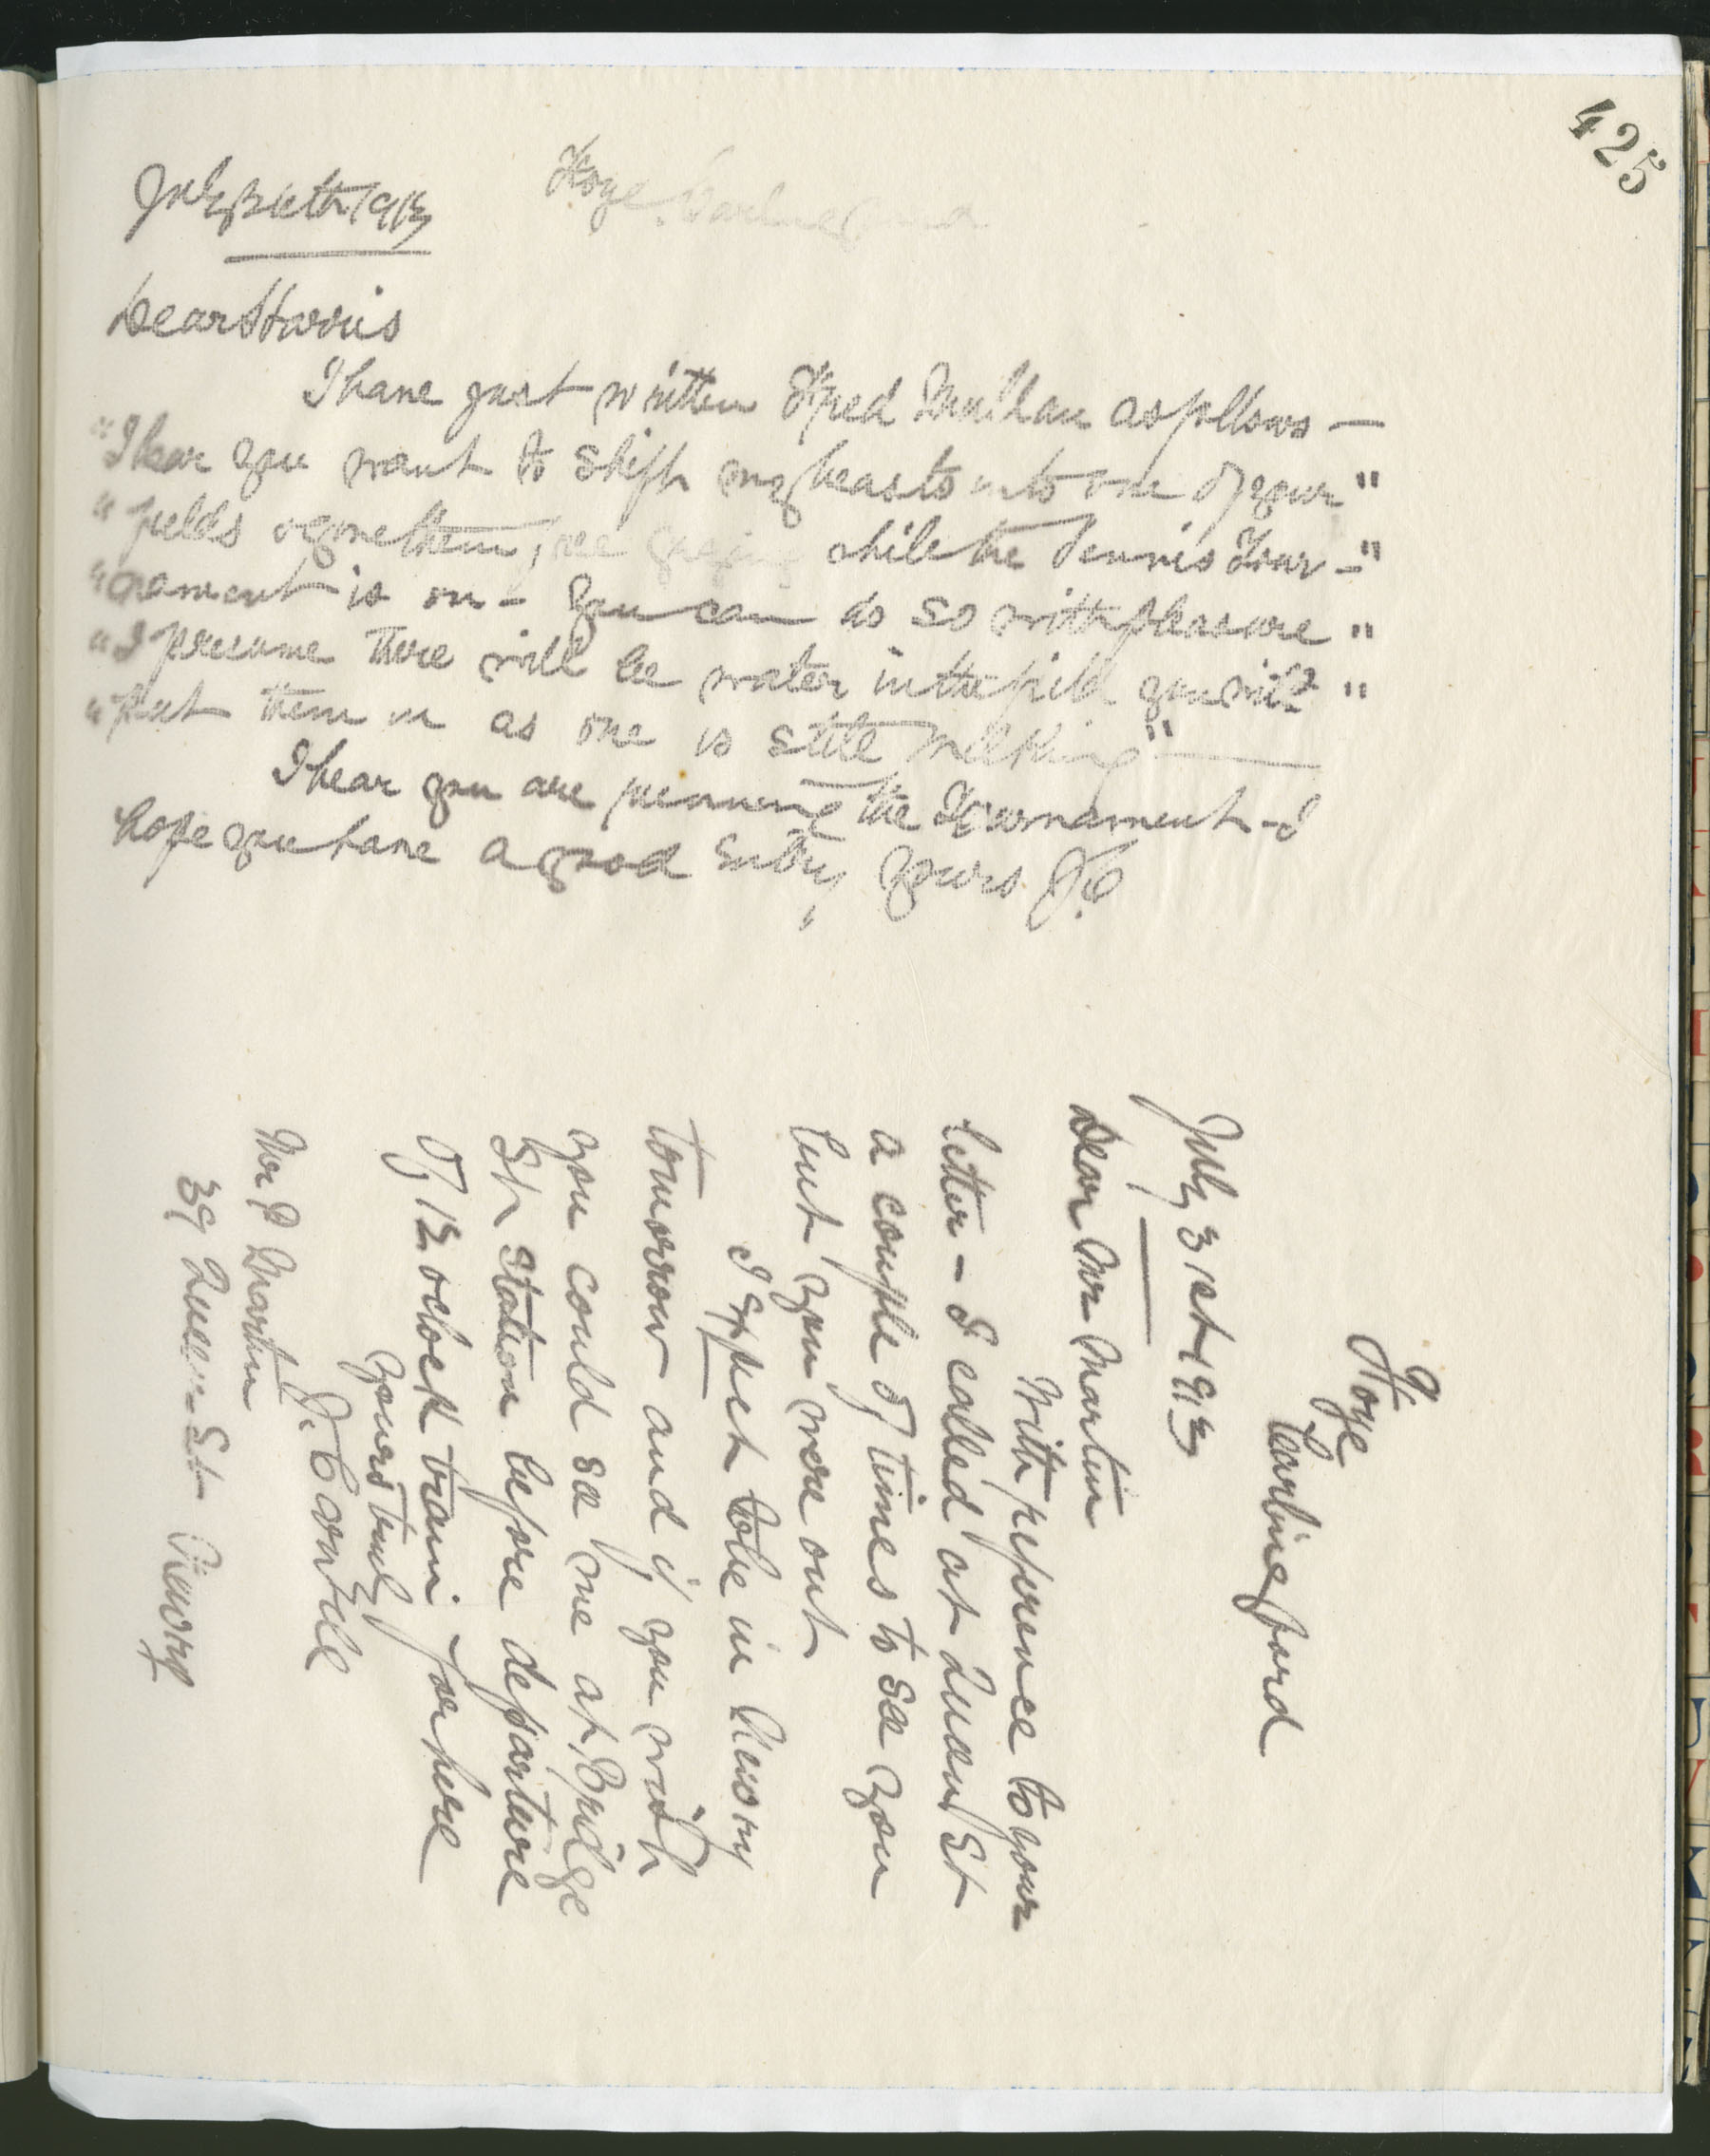 425
July 30th 1913
Dear Harris
I have just written Fred as follows —
"I hear you want to shift my beasts into one of your"
"fields & give them free grazing while the Tennis Tour-"
"nament is on - You can do so with pleasure"
"I presume there will be water in the field you will"
"put them in as one is still milking"
I hear you are running the Tournament - I
hope you have a good entry, yours
Carlingford
July 31st 1913
Dear Mr Martin
With reference to your
letter - I called at Queen St
a couple of times to see you
but you were out
I expect to be in Newry
tomorrow and if you wish
you could see me at Bridge
St Station before departure
of 12 oclock train for here
yours truly
Mr P Martin
39 Queen St Newry